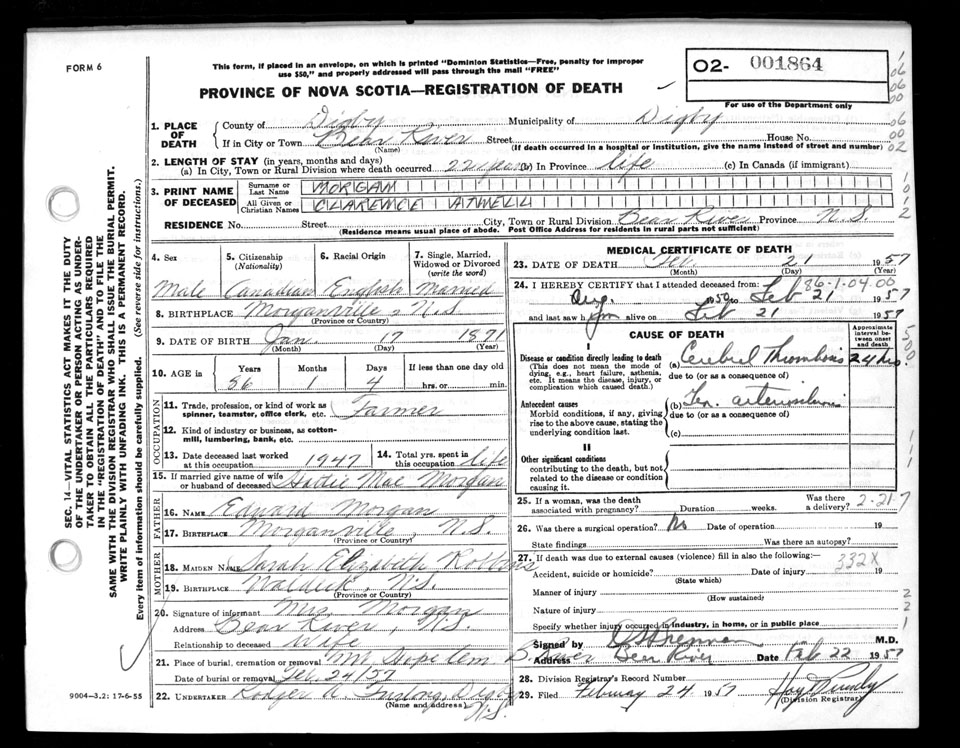 FORM 6
This form, if placed in an envelope, on which is printed "Dominion Statistics—Free, penalty for improper
use $50," and properly addressed will pass through the mail "FREE"
O2- 001864
For use of the Department only
PROVINCE OF NOVA SCOTIA—REGISTRATION OF DEATH
1. PLACE OF DEATH
County of Digby Municipality of Digby
If in City or Town Bear River Street House No.
(Name) (If death occurred in a hospital or institution, give the name instead of street and number)
2. LENGTH OF STAY (in years, months and days)
(a) In City, Town or Rural Division where death occurred 22 years (b) In Province life (c) In Canada (if immigrant)
3. PRINT NAME OF DECEASED
Surname or Last Name MORGAN
All Given or Christian Names CLARENCE ATWELL
RESIDENCE No. Street City, Town or Rural Division Bear River Province N.S.
(Residence means usual place of abode. Post Office Address for residents in rural parts not sufficient)
4. Sex
Male
5. Citizenship (Nationality)
Canadian
6. Racial Origin
English
7. Single, Married, Widowed or Divorced (write the word)
Married
8. BIRTHPLACE Morganville, N.S.
(Province or Country)
9. DATE OF BIRTH Jan. 17 1871
(Month) (Day) (Year)
10. AGE in Years Months Days If less than one day old
86 1 4 hrs. or min.
OCCUPATION
11. Trade, profession, or kind of work as spinner, teamster, office clerk, etc. Farmer
12. Kind of industry or business, as cotton-mill, lumbering, bank, etc.
13. Date deceased last worked at this occupation 1947
14. Total yrs. spent in this occupation life
15. If married give name of wife or husband of deceased Sadie Mae Morgan
FATHER
16. NAME Edward Morgan
17. BIRTHPLACE Morganville, N.S.
(Province or Country)
MOTHER
18. MAIDEN NAME Sarah Elizabeth Robbins
19. BIRTHPLACE Waldeck, N.S.
(Province or Country)
20. Signature of informant Mrs. Morgan
Address Bear River, N.S.
Relationship to deceased Wife
21. Place of burial, cremation or removal Mt Hope Cem B. River
Date of burial or removal Feb. 24/57
22. UNDERTAKER Digby N.S.
(Name and address)
9004—3.2: 17-6-55
MEDICAL CERTIFICATE OF DEATH
23. DATE OF DEATH Feb. 21 1957
(Month) (Day) (Year)
24. I HEREBY CERTIFY that I attended deceased from: 86-1-04.00
Aug. 1950 to Feb 21 1957
and last saw him alive on Feb 21 1957
CAUSE OF DEATH
Approximate interval between onset and death
I
Disease or condition directly leading to death
(This does not mean the mode of dying, e.g., heart failure, asthenia, etc. It means the disease, injury, or complication which caused death.)
(a) Cerebral Thrombosis 24 hrs
due to (or as a consequence of)
Antecedent causes
Morbid conditions, if any, giving rise to the above cause, stating the underlying condition last.
(b) Gen. arteriosclerosis
due to (or as a consequence of)
(c)
II
Other significant conditions
contributing to the death, but not related to the disease or condition causing it.
25. If a woman, was the death associated with pregnancy? Duration weeks. Was there a delivery? 2-21-7
26. Was there a surgical operation? No Date of operation 19
State findings Was there an autopsy?
27. If death was due to external causes (violence) fill in also the following:—
332X
Accident, suicide or homicide? Date of injury 19
(State which)
Manner of injury
(How sustained)
Nature of injury
Specify whether injury occurred in industry, in home, or in public place
Signed by M.D.
Address Bear River Date Feb 22 1957
28. Division Registrar's Record Number
29. Filed February 24 1957
(Division Registrar)
SEC. 14—VITAL STATISTICS ACT MAKES IT THE DUTY
OF THE UNDERTAKER OR PERSON ACTING AS UNDER-
TAKER TO OBTAIN ALL THE PARTICULARS REQUIRED
IN THE "REGISTRATION OF DEATH" AND TO FILE THE
SAME WITH THE DIVISION REGISTRAR WHO SHALL ISSUE THE BURIAL PERMIT.
WRITE PLAINLY WITH UNFADING INK. THIS IS A PERMANENT RECORD.
Every item of information should be carefully supplied. (See reverse side for instructions.)